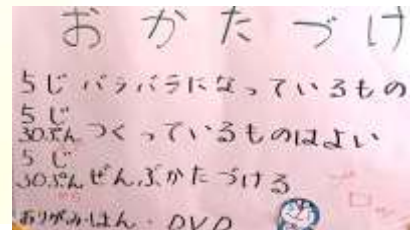 おかたづけ
5じ バラバラになっているもの
5じ30ぷん つくっているものはよい
5じ30ぷん ぜんぶかたづける
おりがみ・ほん・DVD
ブロック